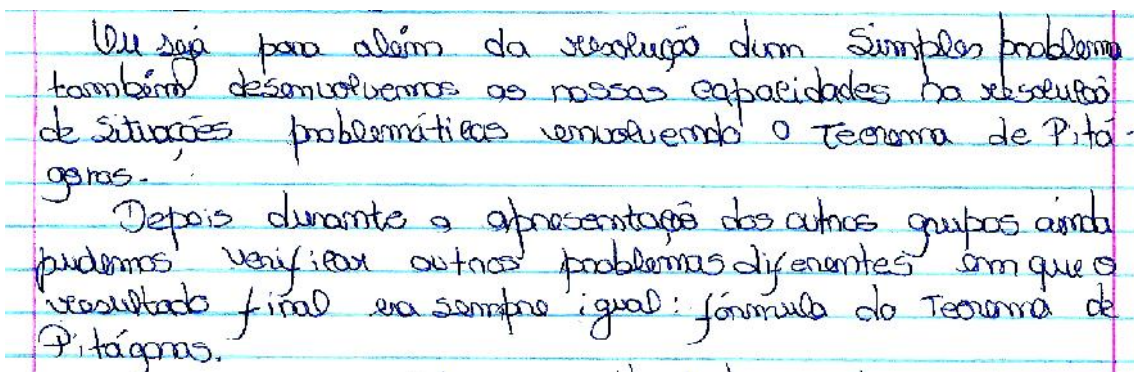 Ou seja para além da resolução dum simples problema
também desenvolvemos as nossas capacidades na resolução
de situações problemáticas envolvendo o Teorema de Pitá-
goras.
Depois durante a apresentação dos outros grupos ainda
pudemos verificar outros problemas diferentes em que o
resultado final era sempre igual: fórmula do Teorema de
Pitágoras.